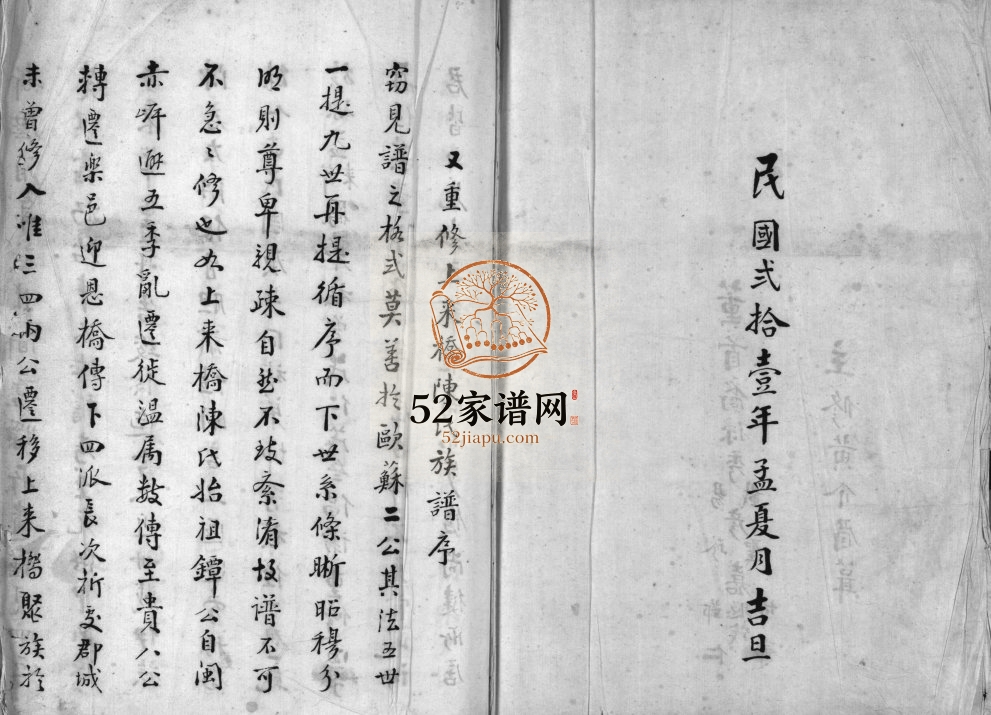 民國弍拾壹年孟夏月吉旦
又重修上来橋陳氏族譜序
窃見譜之格式莫善扵歐蘇二公其法五世
一提九世再提循序而下世系條晰昭穆分
明則尊卑親疎自然不致紊淆故谱不可
不急〻修也如上来橋陳氏始祖鐔公自閩
赤岸避五季亂遷徙温属數傳至貴八公
轉遷樂邑迎恩橋傳下四派長次折處郡城
未曾修入唯三四兩公遷移上来橋聚族於
52家谱网
52jiapu.com